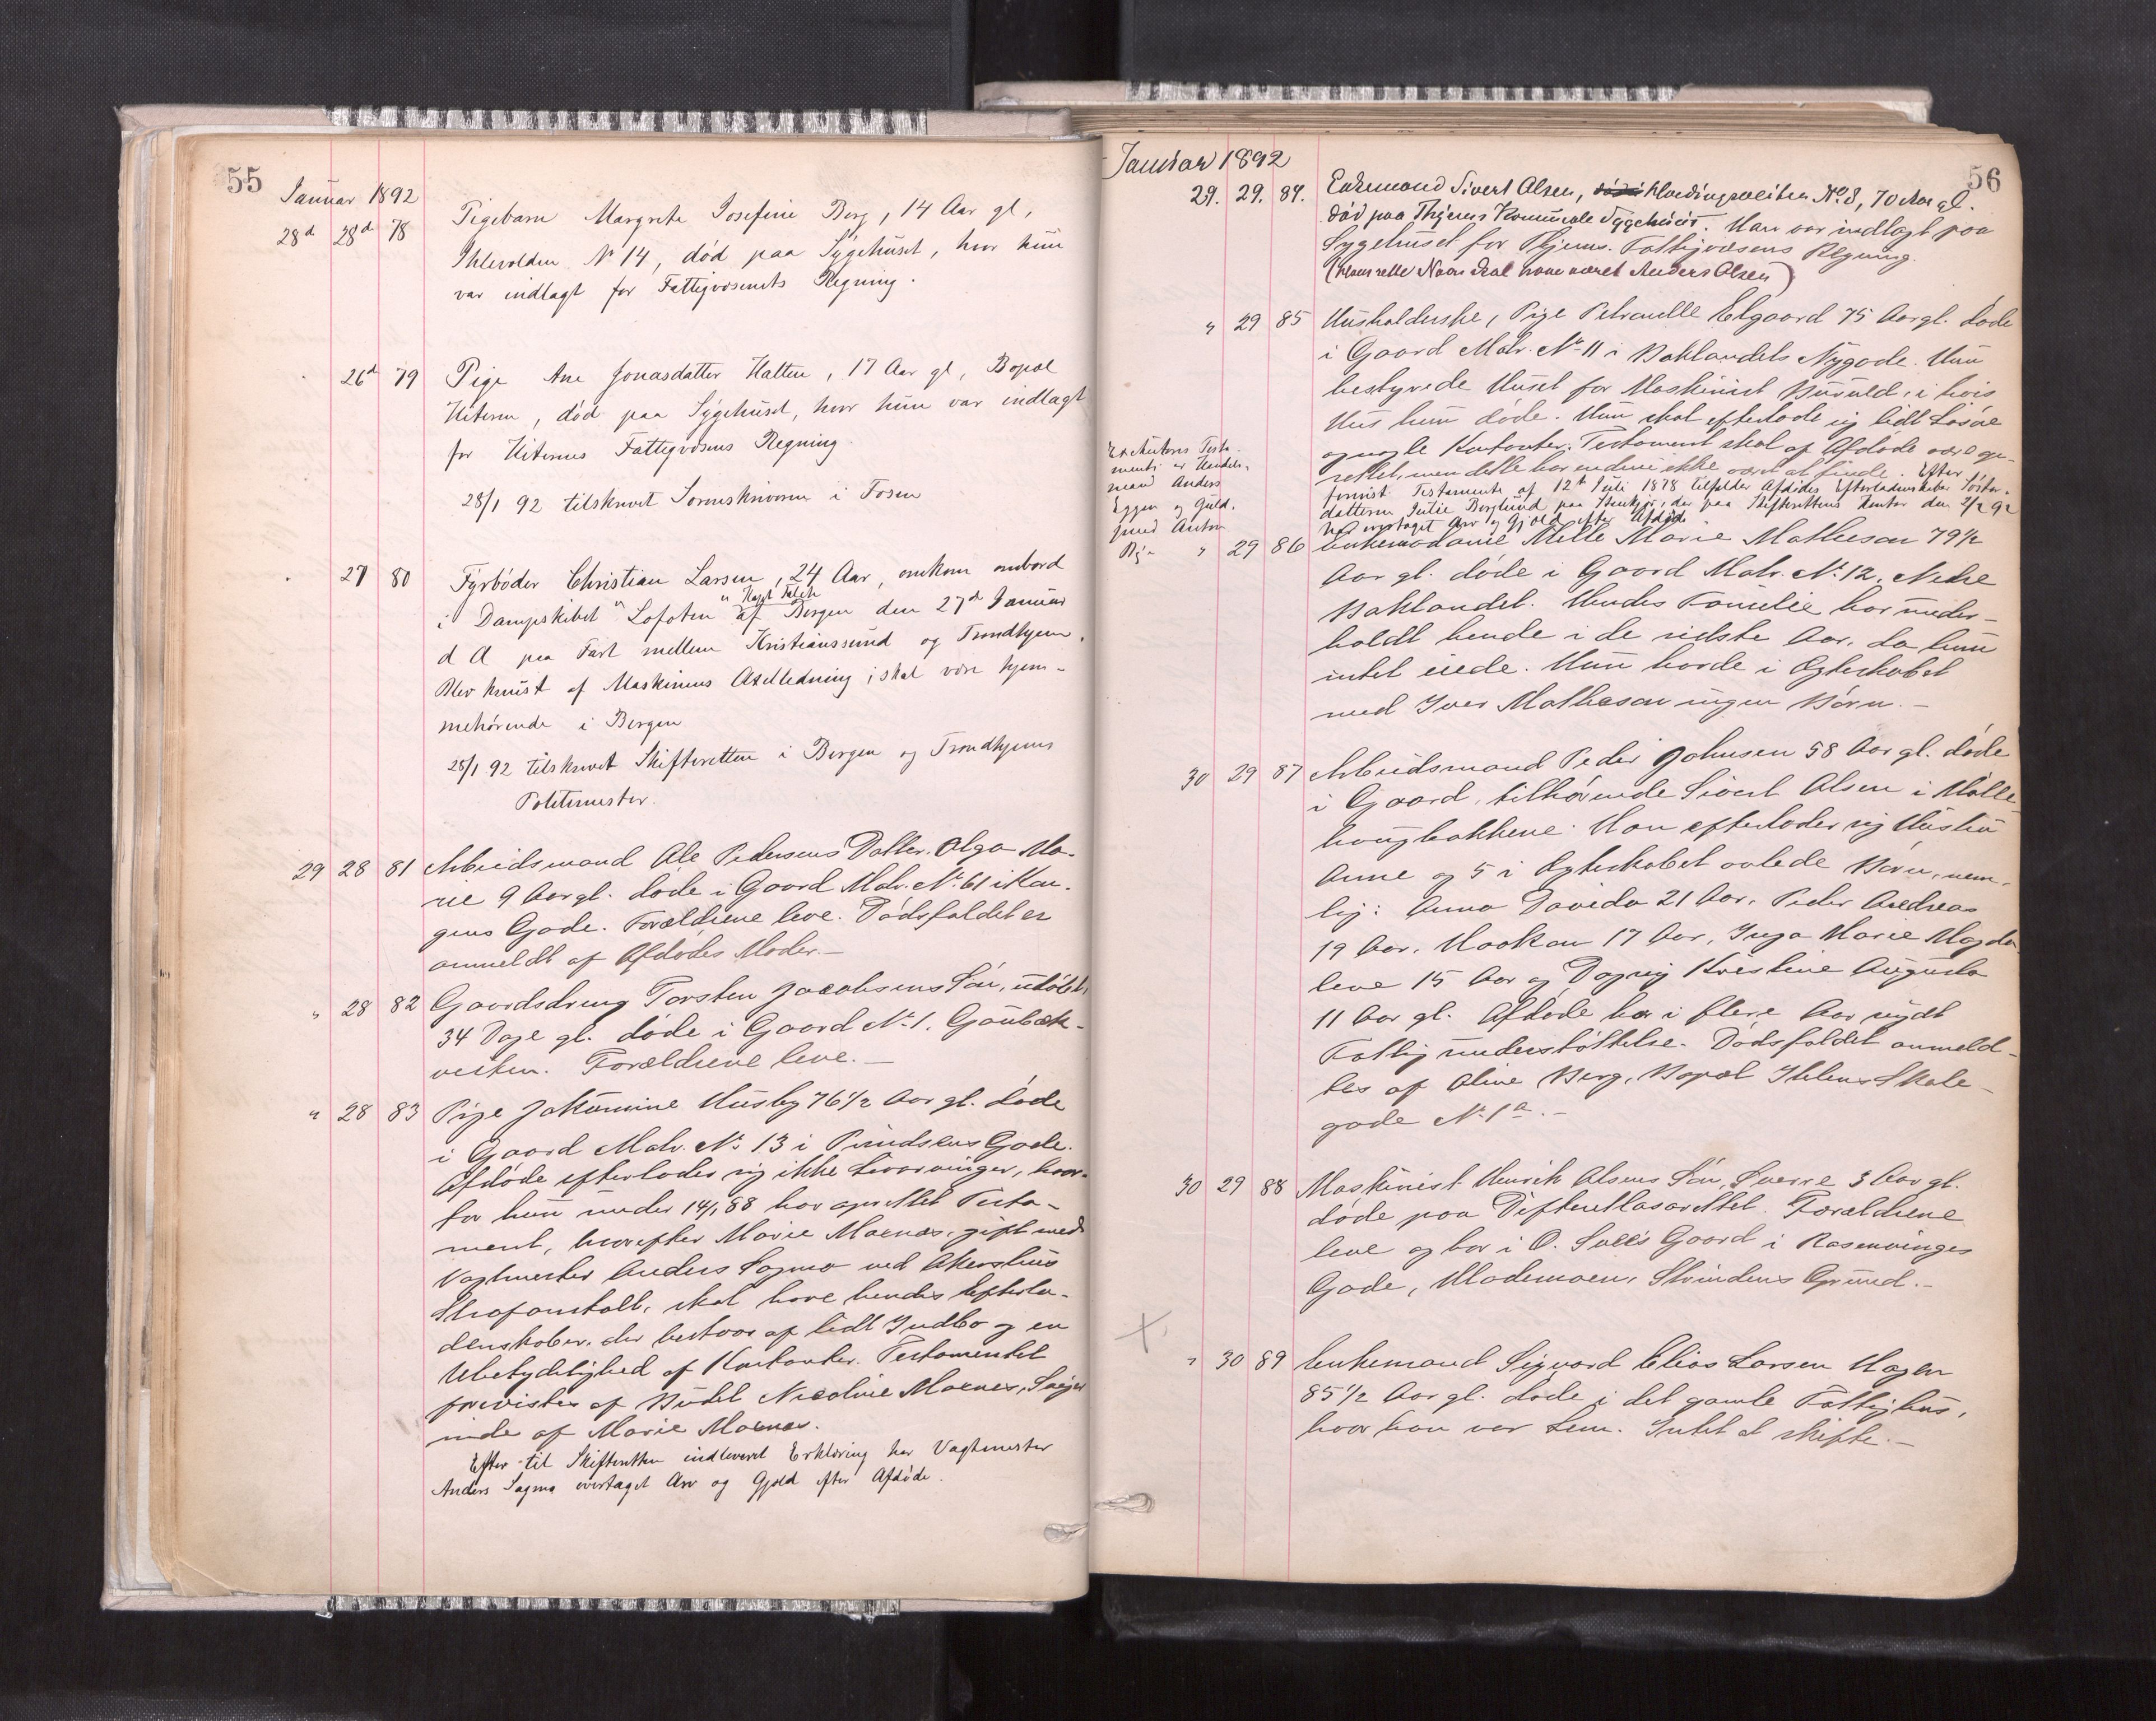 55
Januar 1892
28d 28d 78 Pigebarn Margrete Josefine Berg, 14 Aar gl,
Ihlevolden No 14, død paa Sygehuset, hvor hun
var indlagt for Fattigvæsenets Regning.
26d 79 Pige Ane Jonasdatter Hatten, 17 Aar gl, Bopæl
Hiteren, død paa Sygehuset, hvor hun var indlagt
for Hiterens Fattigvæsens Regning
28/1 92 tilskrevet Sorenskriveren i Fosen
27 80 Fyrbøder Christian Larsen, 24 Aar, omkom ombord
" Kapt Falck
i Dampskibet "Lofoten af Bergen den 27d Januar
d A paa Fart mellem Kristianssund og Trondhjem.
Blev knust af Maskinens Axelledning; skal være hjem-
mehørende i Bergen
28/1 92 tilskrevet Skifteretten i Bergen og Trondhjems
Politimester.
29 28 81 Arbeidsmand Ole Pedersens Datter, Olga Ma-
rie 9 Aar gl. døde i Gaard Matr. No. 61 i Kon-
gens Gade. Forældrene leve. Dødsfaldet er
anmeldt af Afdødes Moder.-
" 28 82 Gaardsdreng Torsten Jacobsens Søn, udøbt,
34 Dage gl. døde i Gaard No. 1, Gaubæk-
veiten. Forældrene leve.-
" 28 83 Pige Jakomine Husby 76 1/2 Aar gl. døde
i Gaard Matr. No. 13 i Prindsens Gade.
Afdøde efterlader sig ikke Livsarvinger, hvor-
for hun under 14/1 88 har oprettet Testa-
ment, hvorefter Marie Moenæs, gift med
Vagtmester Anders Sagmo ved Akershus
Strafanstalt, skal have hendes Efterla-
denskaber, der bestaar af lidt Indbo og en
Ubetydelighed af Kontanter. Testamentet
forevistes af Budet Nicoline Moenes, Sviger
inde af Marie Moenæs.
Efter til Skifteretten indleveret Erklæring har Vagtmester
Anders Sagmo overtaget Arv og Gjæld efter Afdøde.
Januar 1892
56
29. 29. 84. Enkemand Sivert Olsen, Hvedingsveiten No. 8, 70 Aar gl.
død paa Thjems Kommunale Sygehuus. Han var indlagt paa
Sygehuset for Thjems. Fattigvæsens Regning.
(Hans rette Navn skal have været Anders Olsen)
" 29 85 Husholderske, Pige Petronelle Elgaard 75 Aar gl. døde
i Gaard Matr. No. 11 i Baklandets Nygade. Hun
bestyrede Huset for Maskinist, i hvis
Hus hun døde. Hun skal efterlade sig lidt Løsøre
og nogle Kontanter. Testament skal af Afdøde være op-
rettet, men dette har endnu ikke været at finde. Efter
forevist Testamente af 12te Juli 1878 tilfalder Afdødes Efterladenskaber Søster-
datteren Julie Berglund paa Stenkjær, der paa Skifterettens Kontor den 2/2 92
har overtaget Arv og Gjæld efter Afdøde
Exekutores Testa-
menti er Handels-
mand Anders
Eggen og Guld-
smed Anton
Bye
" 29 86 Enkemadame Mette Marie Matheson 79 1/2
Aar gl. døde i Gaard Matr. No. 12, Nedre
Baklandet. Hendes Familie har under-
holdt hende i de sidste Aar, da hun
intet eiede. Hun havde i Ægteskabet
med Iver Matheson ingen Børn.-
30 29 87 Arbeidsmand Peder Johnsen 58 Aar gl. døde
i Gaard, tilhørende Sivert Olsen i Mølle-
haugbakkene. Han efterlader sig Hustru
Anne og 5 i Ægteskabet avlede Børn, nem-
lig: Anna Davida 21 Aar, Peder Andreas
19 Aar, Haakon 17 Aar, Inga Marie Magda-
lene 15 Aar og Dagny Kristine Augusta
11 Aar gl. Afdøde har i flere Aar nydt
Fattigunderstøttelse. Dødsfaldet anmeld-
tes af Oline Berg, Bopæl Ihlens Skole-
gade No. 1a.-
30 29 88 Maskinist Henrik Olsens Søn, Sverre 3 Aar gl.
døde paa Difterilasarettet. Forældrene
leve og bor i O. Svees Gaard i Rosenvinges
Gade, Mademoen, Strindens Grund.-
" 30 89 Enkemand Sigvard Elias Larsen Hagen
85 1/2 Aar gl. døde i det gamle Fattighus,
hvor han var Lem. Intet at skifte.-